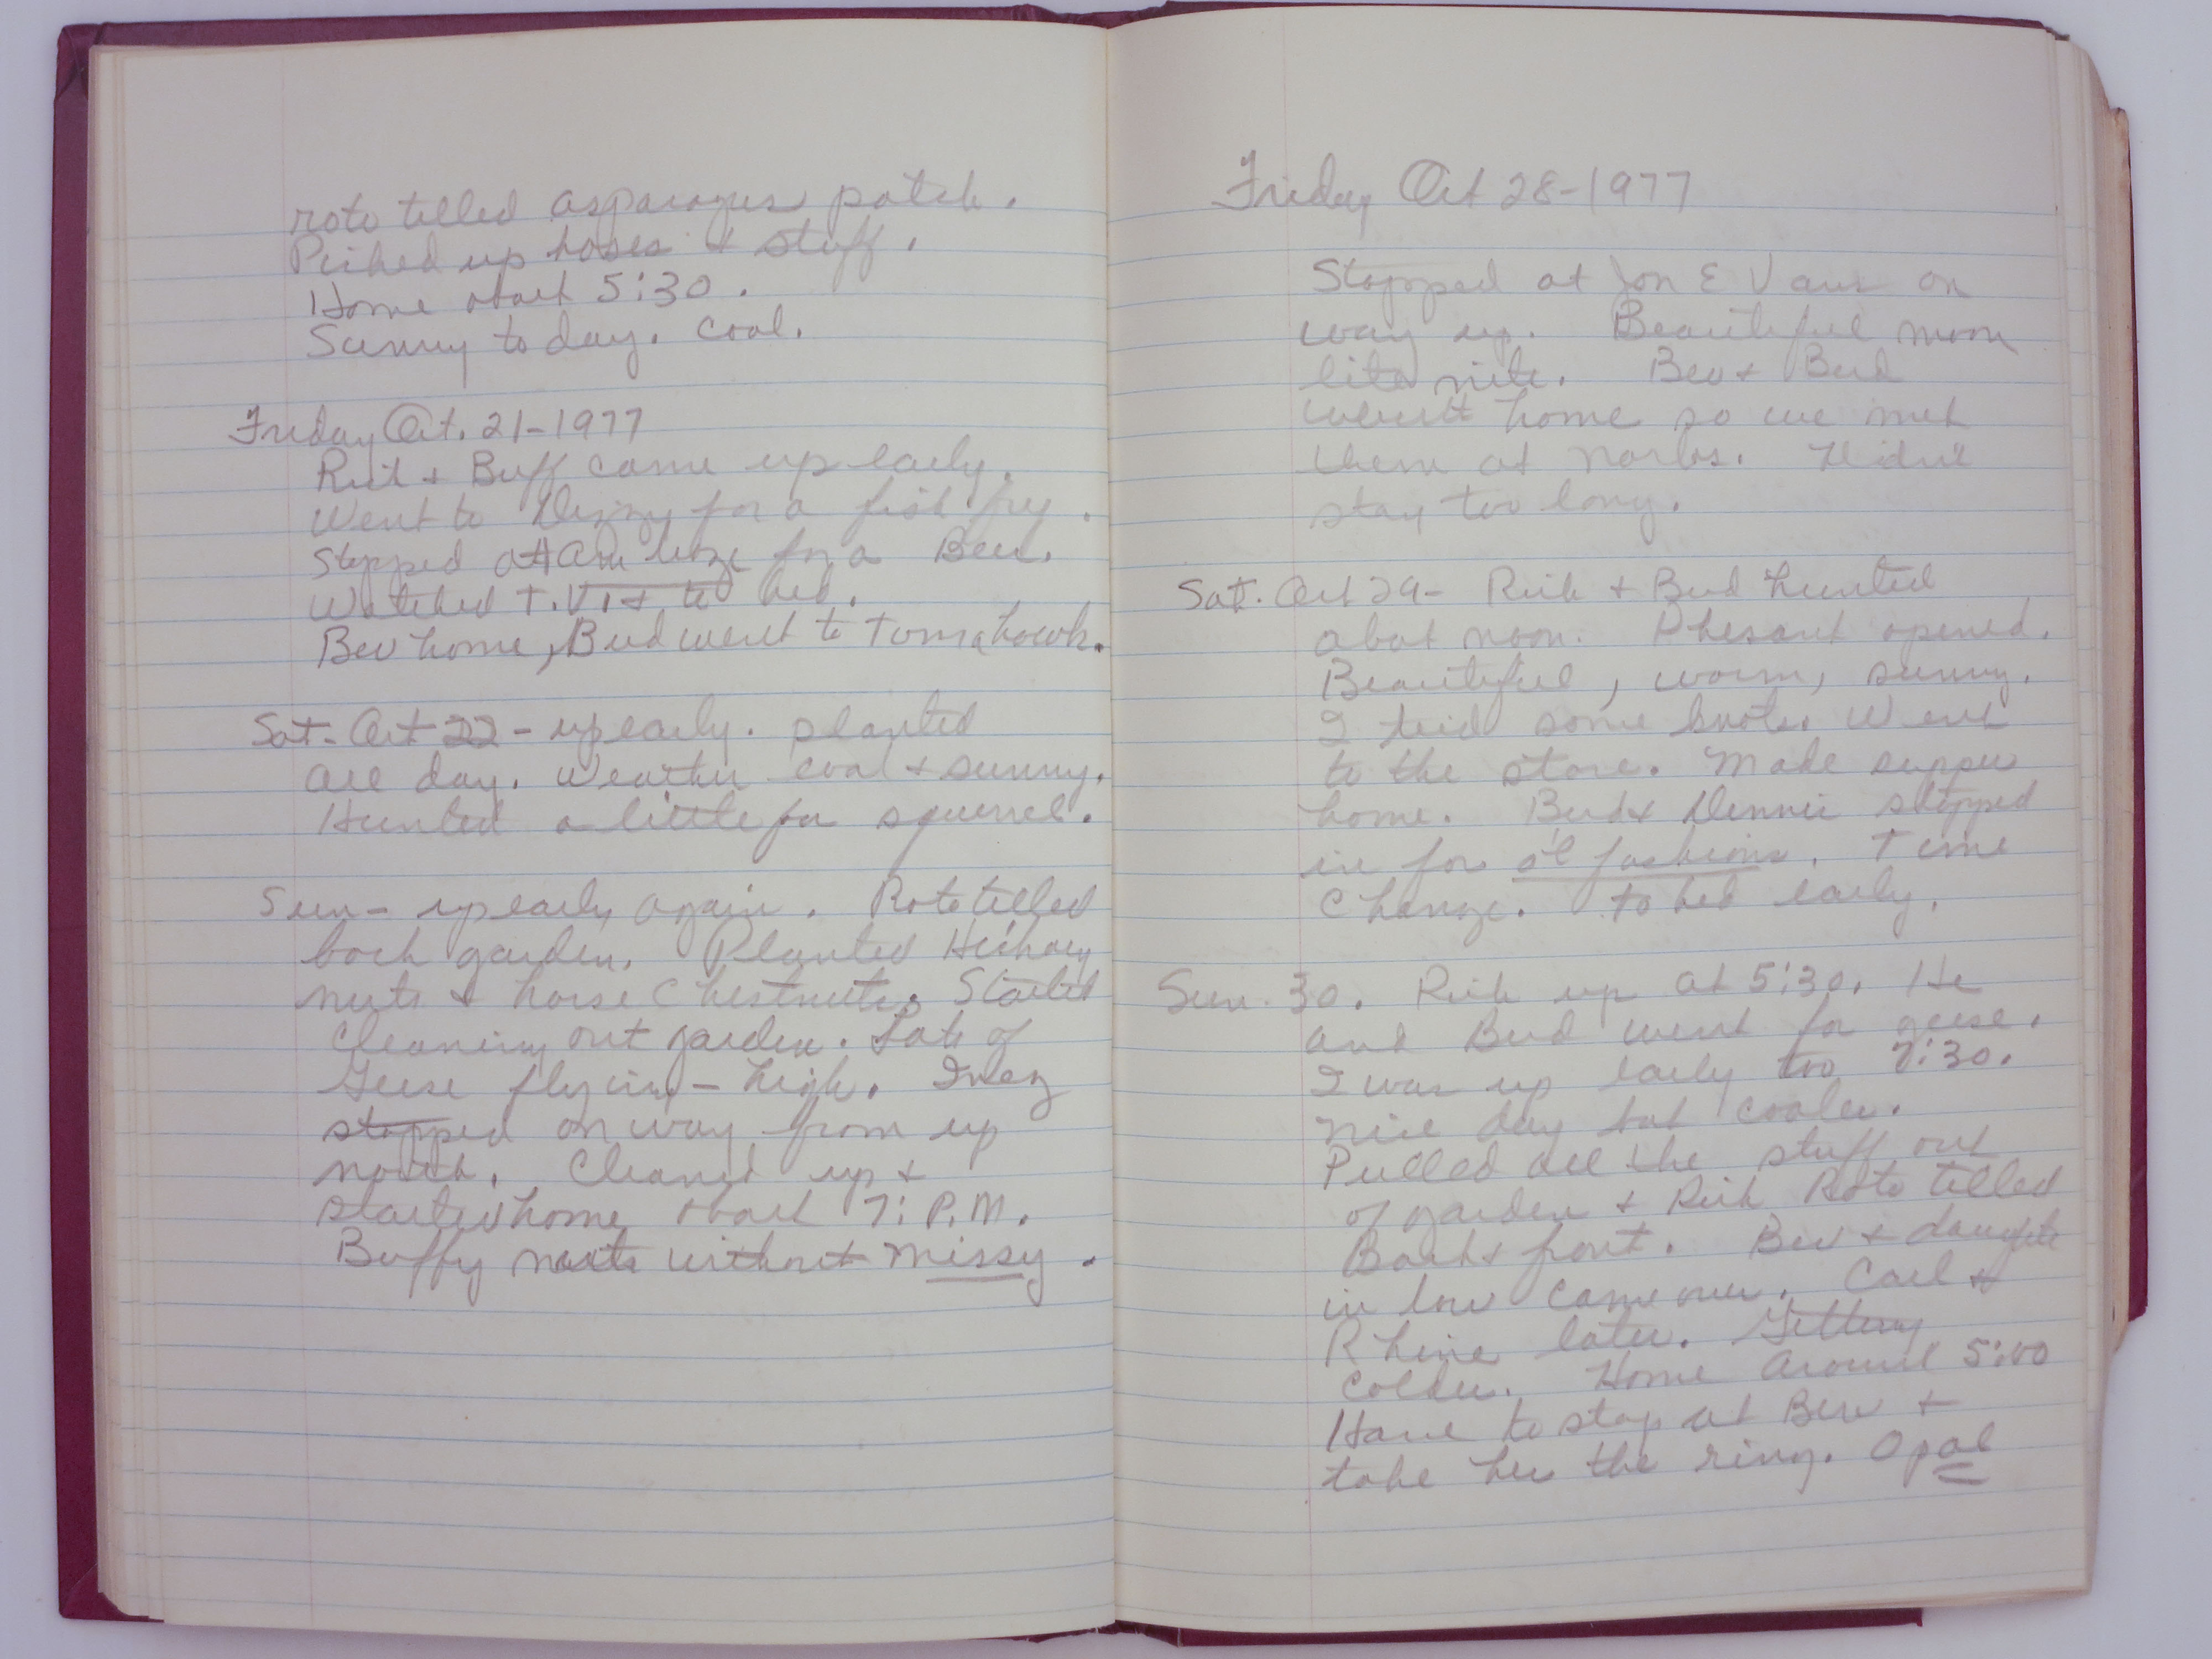 roto tilled asparagus patch.
Picked up hoses & stuff.
Home about 5:30.
Sunny today. Cool.
Friday Oct. 21-1977
Rich & Buff came up early.
Went to Dizzy for a fish fry.
Stopped at for a Beer.
Watched T.V. & to bed.
Bev home, Bud went to Tomahawk.
Sat- Oct 22 - up early. planted
all day. Weather cool & sunny.
Hunted a little for squirrel.
Sun- up early again. Roto tilled
back garden. Planted Hickory
nuts & horse Chestnuts. Started
Cleaning out garden. Lots of
Geese flying - high. Inez
stopped on way from up
north. Cleaned up &
started home about 7: P.M.
Buffy without Missy.
Friday Oct 28-1977
Stopped at Jon E Vans on
way up. Beautiful moon
lite nite. Bev & Bud
weren't home so we met
them at Norbs. Didn't
stay too long.
Sat. Oct 29- Rich & Bud hunted
abot noon. Phesant opened.
Beautiful, warm, sunny.
I tied some knots. Went
to the store. Made supper
home. Bud & Dennie stopped
in for ol fashions. Time
Change. to bed early.
Sun. 30. Rich up at 5:30. He
and Bud went for geese.
I was up early too 7:30.
nice day but cooler.
Pulled all the stuff out
of garden & Rich Roto tilled
Back & front. Bev & daughter
in law came over. Carl &
Rhine later. Getting
colder. Home around 5:00
Have to stop at Bev &
take her the ring. Opal